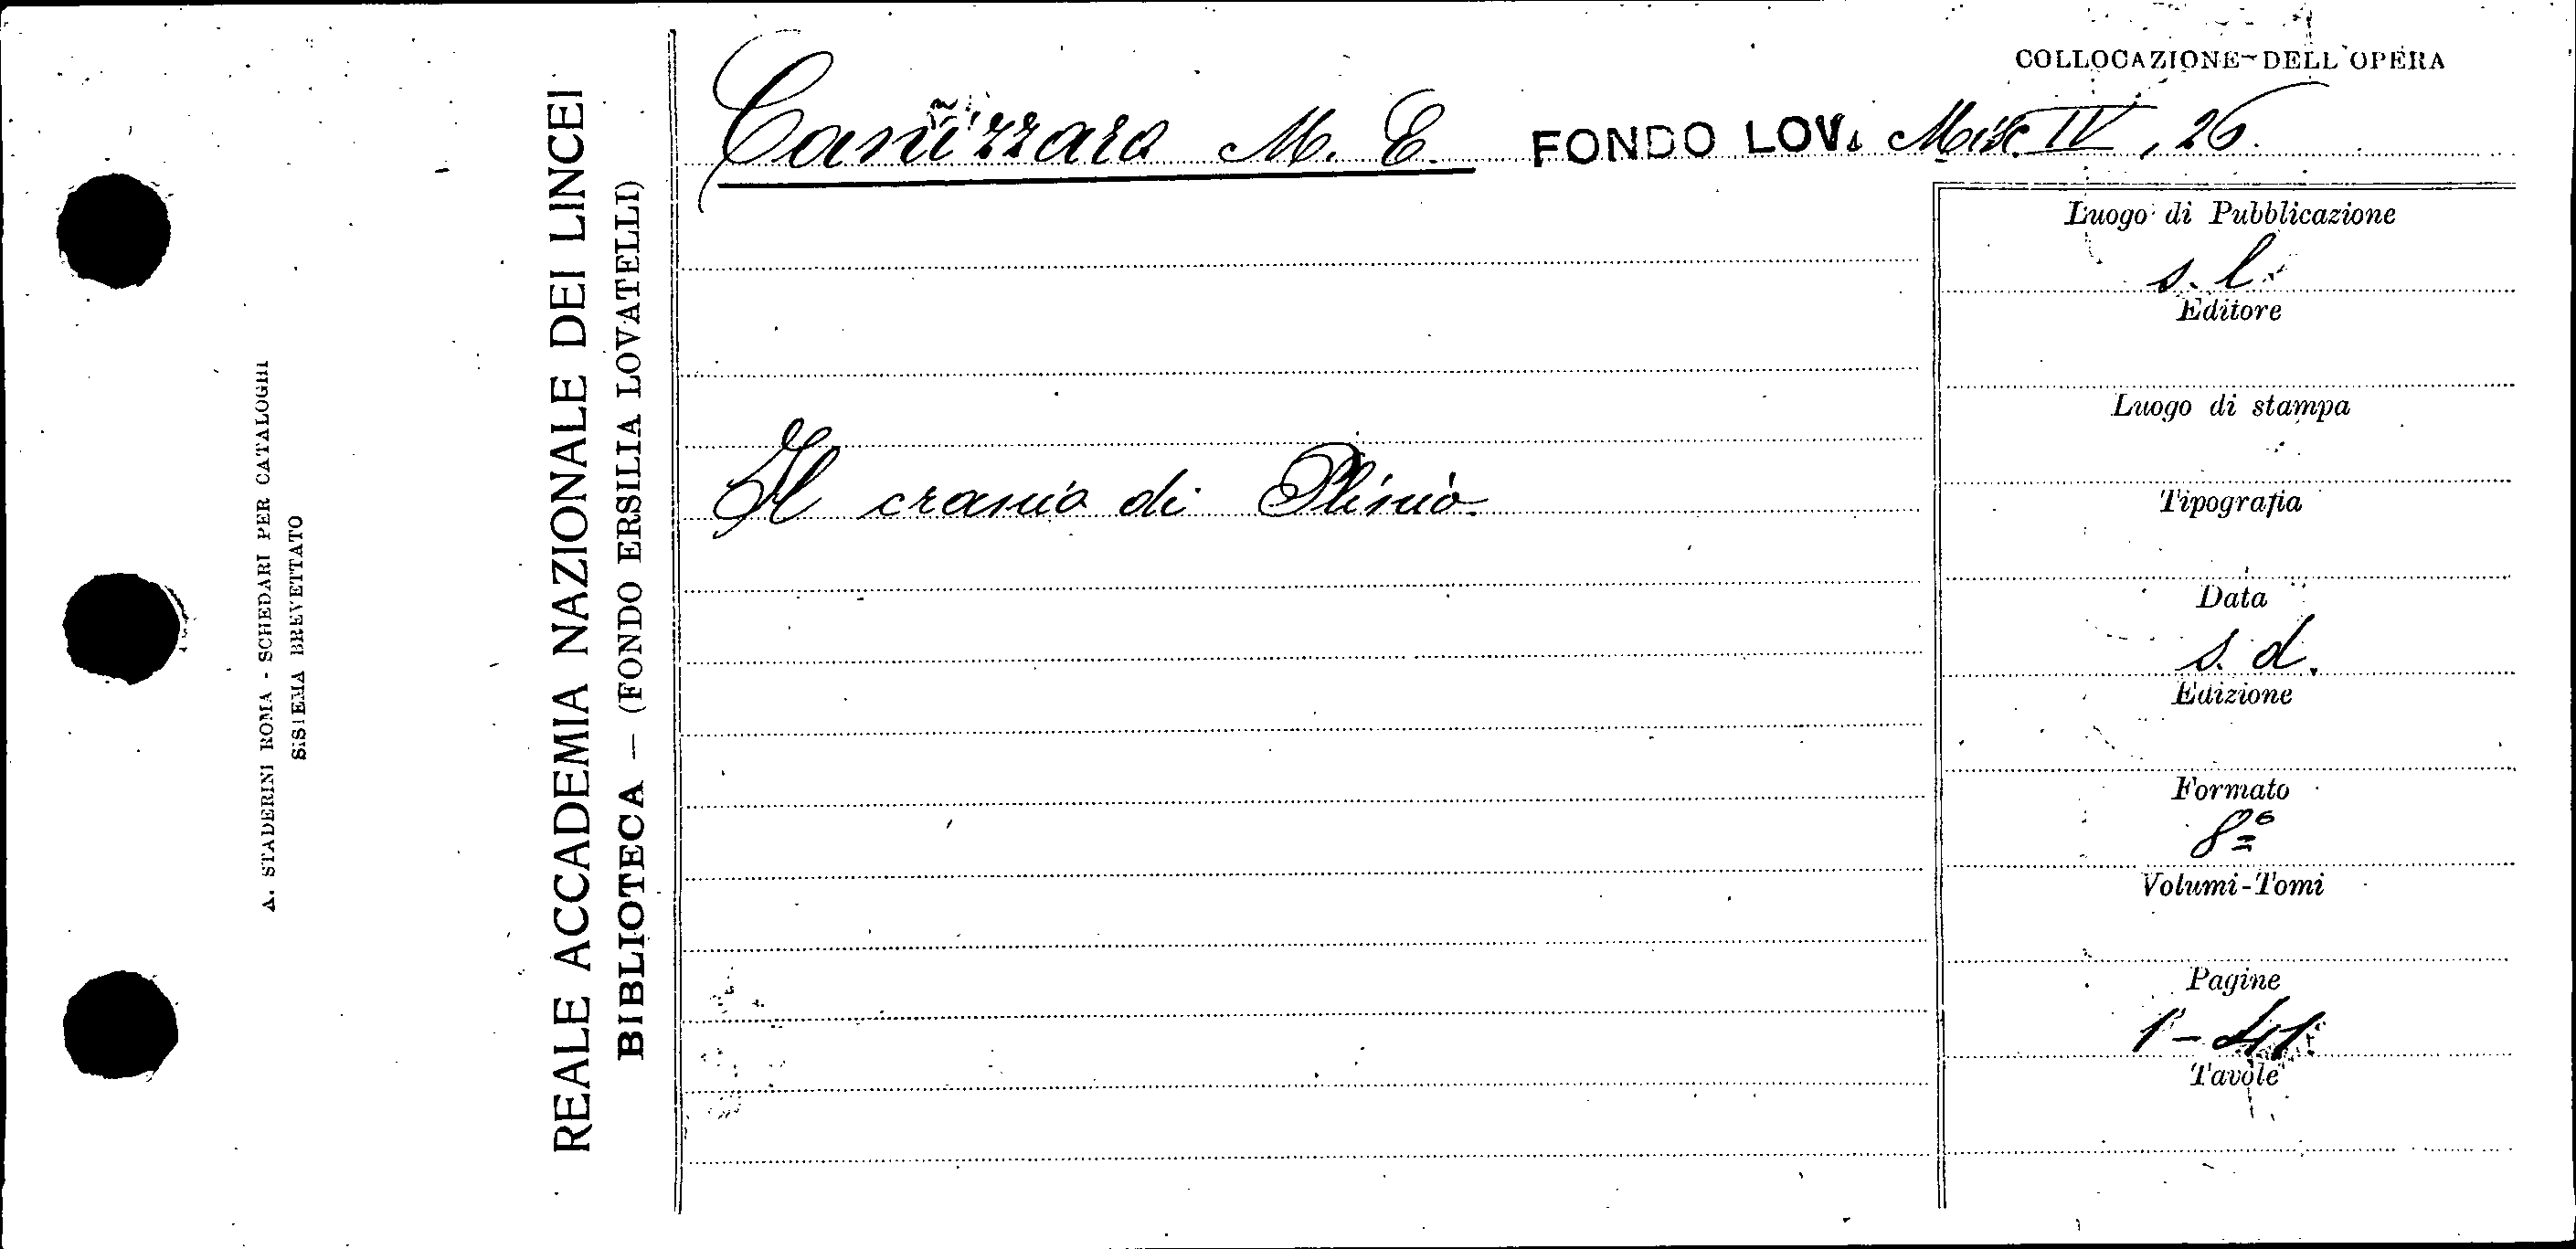 A. STADERINI ROMA - SCHEDARI PER CATALOGHI
SISTEMA BREVETTATO
REALE ACCADEMIA NAZIONALE DEI LINCEI
BIBLIOTECA — (FONDO ERSILIA LOVATELLI)
COLLOCAZIONE DELL'OPERA
Cañizzaro M. E. FONDO LOV. Misc. IV, 26.
Luogo di Pubblicazione
s. l.
Editore
Luogo di stampa
Il cranio di Plinio.
Tipografia
Data
s. d.
Edizione
Formato
8º
Volumi-Tomi
Pagine
1-41
Tavole